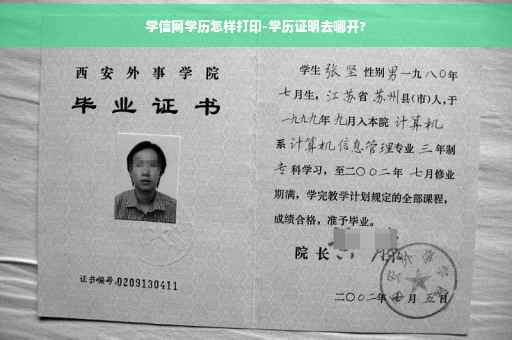 学信网学历怎样打印-学历证明去哪开?
西安外事学院
毕业证书
证书编号:0209130411
学生 张坚 性别 男 一九八〇年
七月生, 江苏省 苏州县(市)人,于
一九九九年 九月入本院 计算机
系 计算机信息管理专业 三 年制
专 科学习, 至二〇〇二年 七月修业
期满, 学完教学计划规定的全部课程,
成绩合格, 准予毕业。
院长
二〇〇二年 月 五日